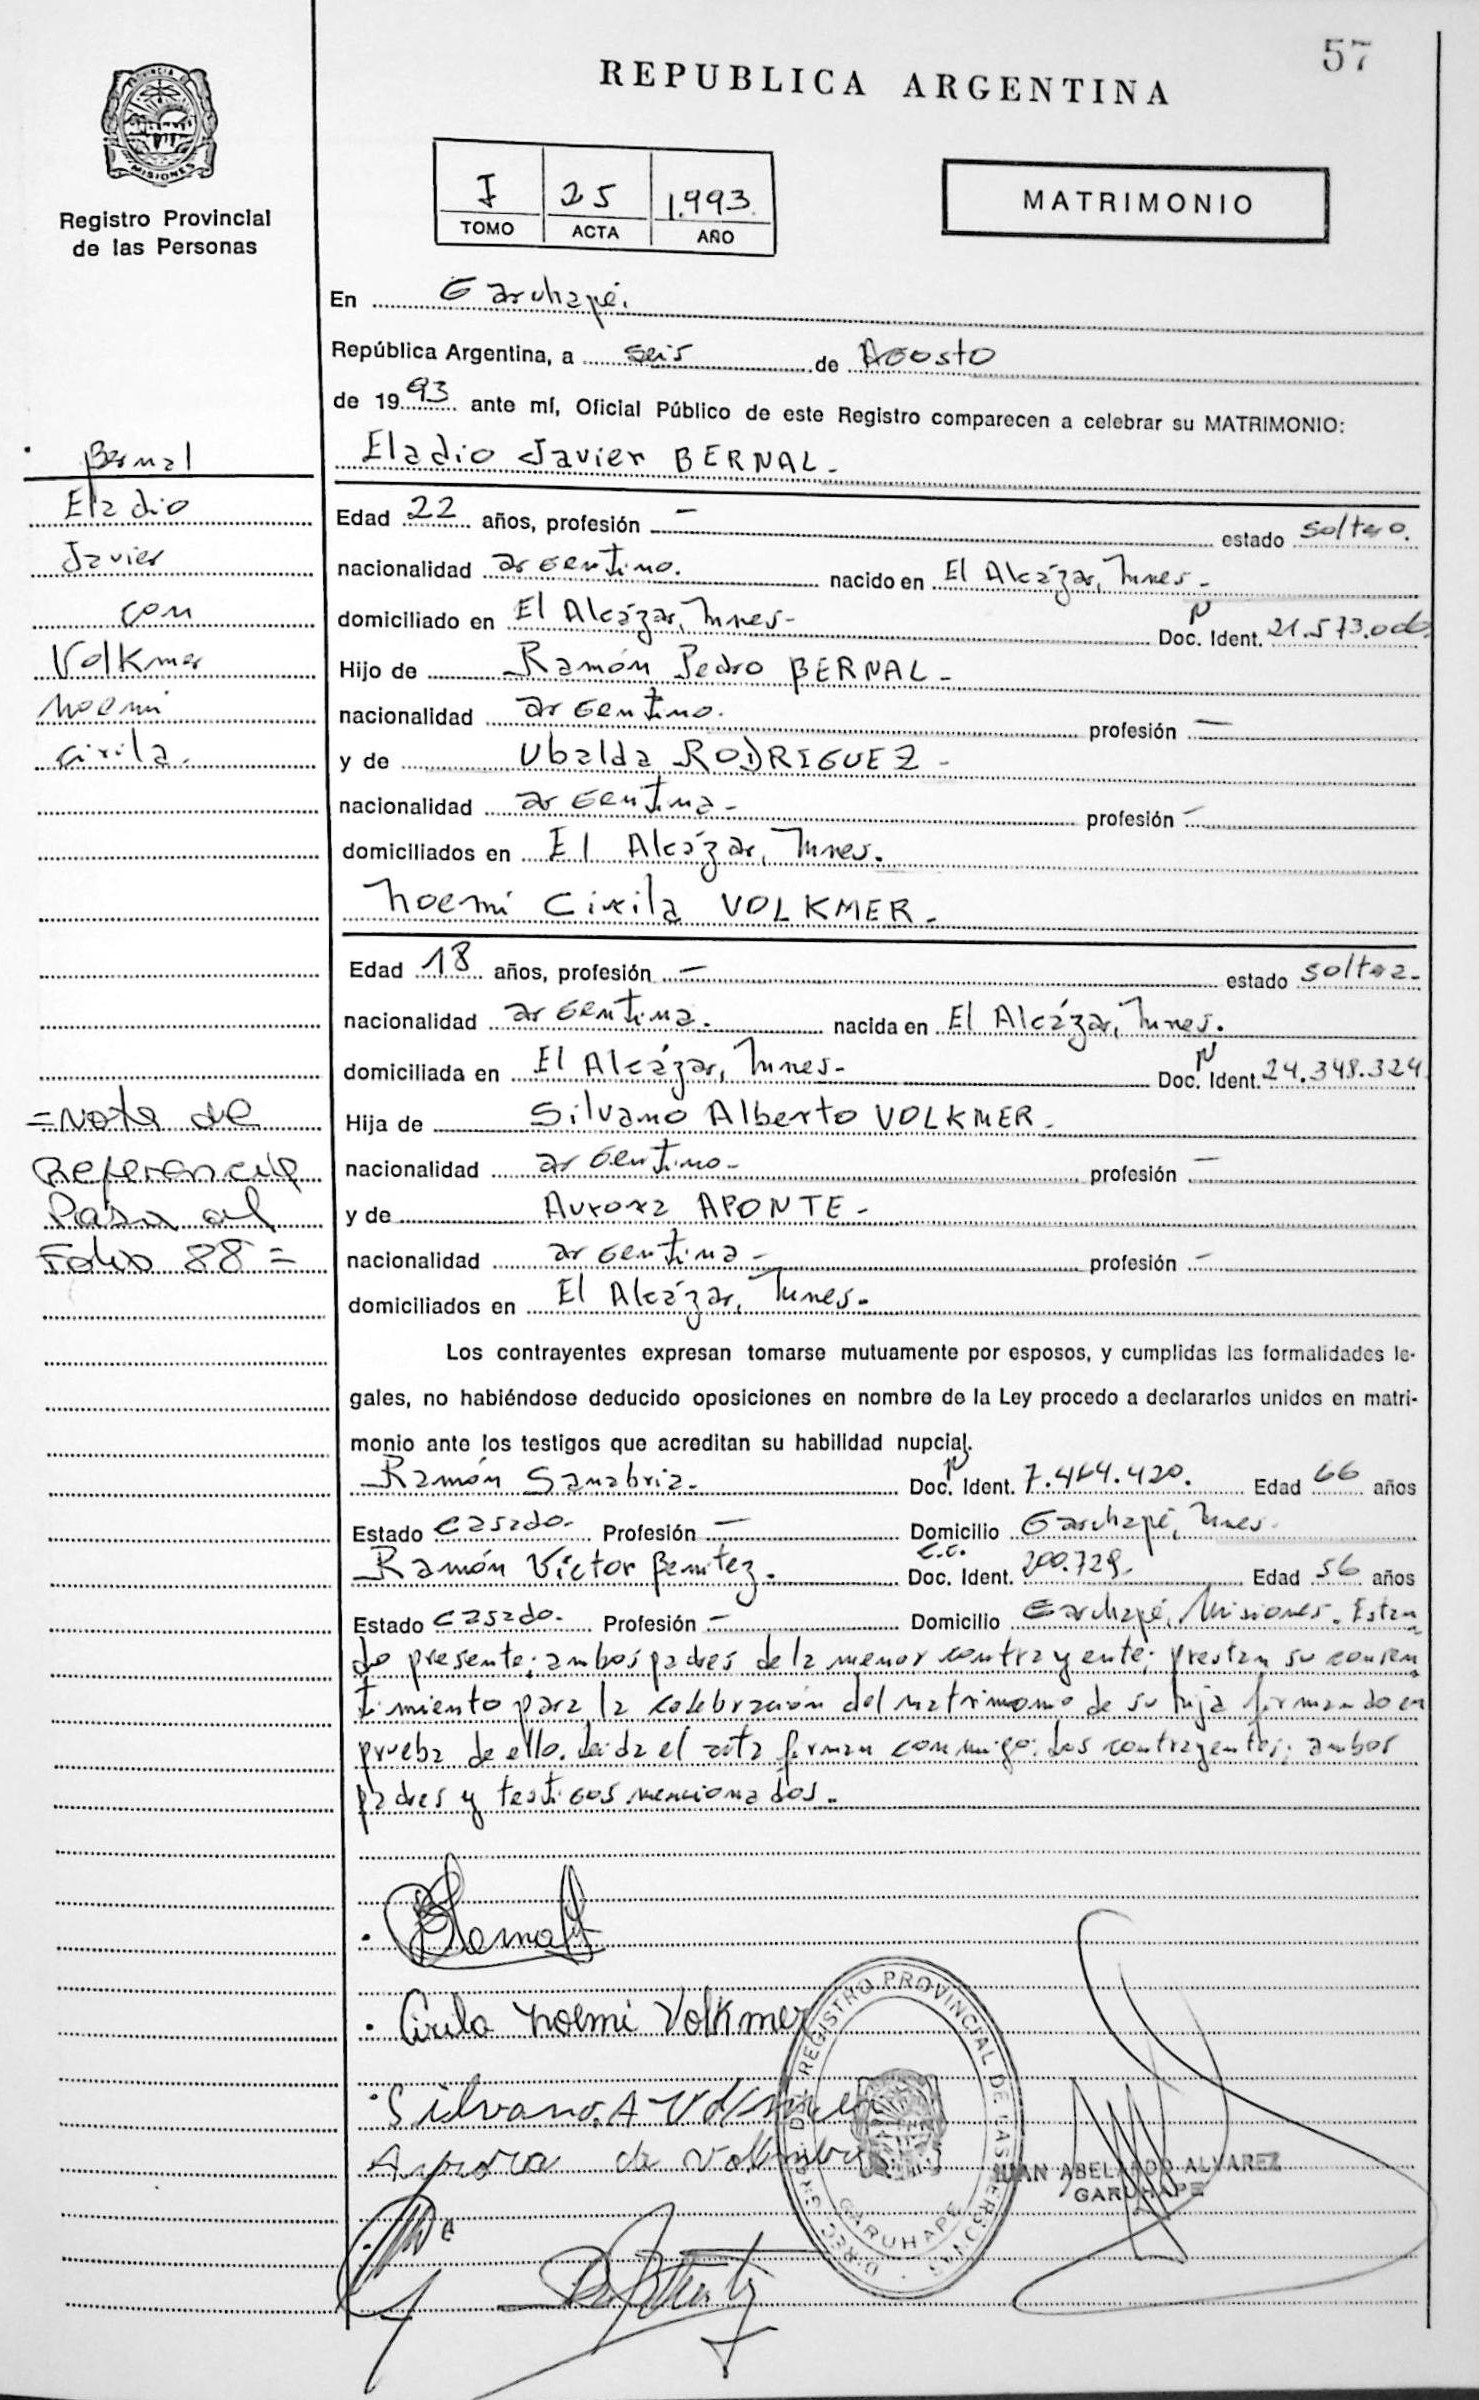 57
REPUBLICA ARGENTINA
PROVINCIA DE MISIONES
Registro Provincial
de las Personas
I 25 1.993
TOMO ACTA AÑO
MATRIMONIO
En Garuhapé.
República Argentina, a seis de Agosto
de 1993 ante mí, Oficial Público de este Registro comparecen a celebrar su MATRIMONIO:
Eladio Javier BERNAL-
Bernal
Eladio
Javier
con
Volkmer
Noemi
Cirila.
Edad 22 años, profesión — estado soltero.
nacionalidad argentino. nacido en El Alcázar, Mnes-
domiciliado en El Alcázar, Mnes- Doc. Ident. 21.573.
Hijo de Ramón Pedro BERNAL-
nacionalidad argentino. profesión —
y de Ubalda RODRIGUEZ-
nacionalidad argentina- profesión —
domiciliados en El Alcázar, Mnes.
Noemi Cirila VOLKMER-
Edad 18 años, profesión — estado soltera-
nacionalidad argentina. nacida en El Alcázar, Mnes.
domiciliada en El Alcázar, Mnes- Doc. Ident. 24.348.324
Hija de Silvano Alberto VOLKMER-
nacionalidad argentino- profesión —
y de Aurora APONTE-
nacionalidad argentina- profesión —
domiciliados en El Alcázar, Mnes.
=Nota de
Referencia
Pasa al
Folio 88=
Los contrayentes expresan tomarse mutuamente por esposos, y cumplidas las formalidades le-
gales, no habiéndose deducido oposiciones en nombre de la Ley procedo a declararlos unidos en matri-
monio ante los testigos que acreditan su habilidad nupcial.
Ramón Sanabria. Doc. Ident. 7.464.420. Edad 66 años
Estado casado. Profesión — Domicilio Garuhapé, Mnes.
Ramón Víctor Benitez. Doc. Ident. C.C. 200.729. Edad 56 años
Estado casado. Profesión — Domicilio Garuhapé, Misiones. Estan
do presente: ambos padres de la menor contrayente; prestan su consen
timiento para la celebración del matrimonio de su hija firmando en
prueba de ello. Leida el acta firman conmigo: los contrayentes; ambos
padres y testigos mencionados.
Bernal
Cirila Noemi Volkmer
Silvano A Volkmer
Aurora de Volkmer
REGISTRO PROVINCIAL DE LAS PERSONAS
GARUHAPE
JUAN ABELARDO ALVAREZ
GARUHAPE